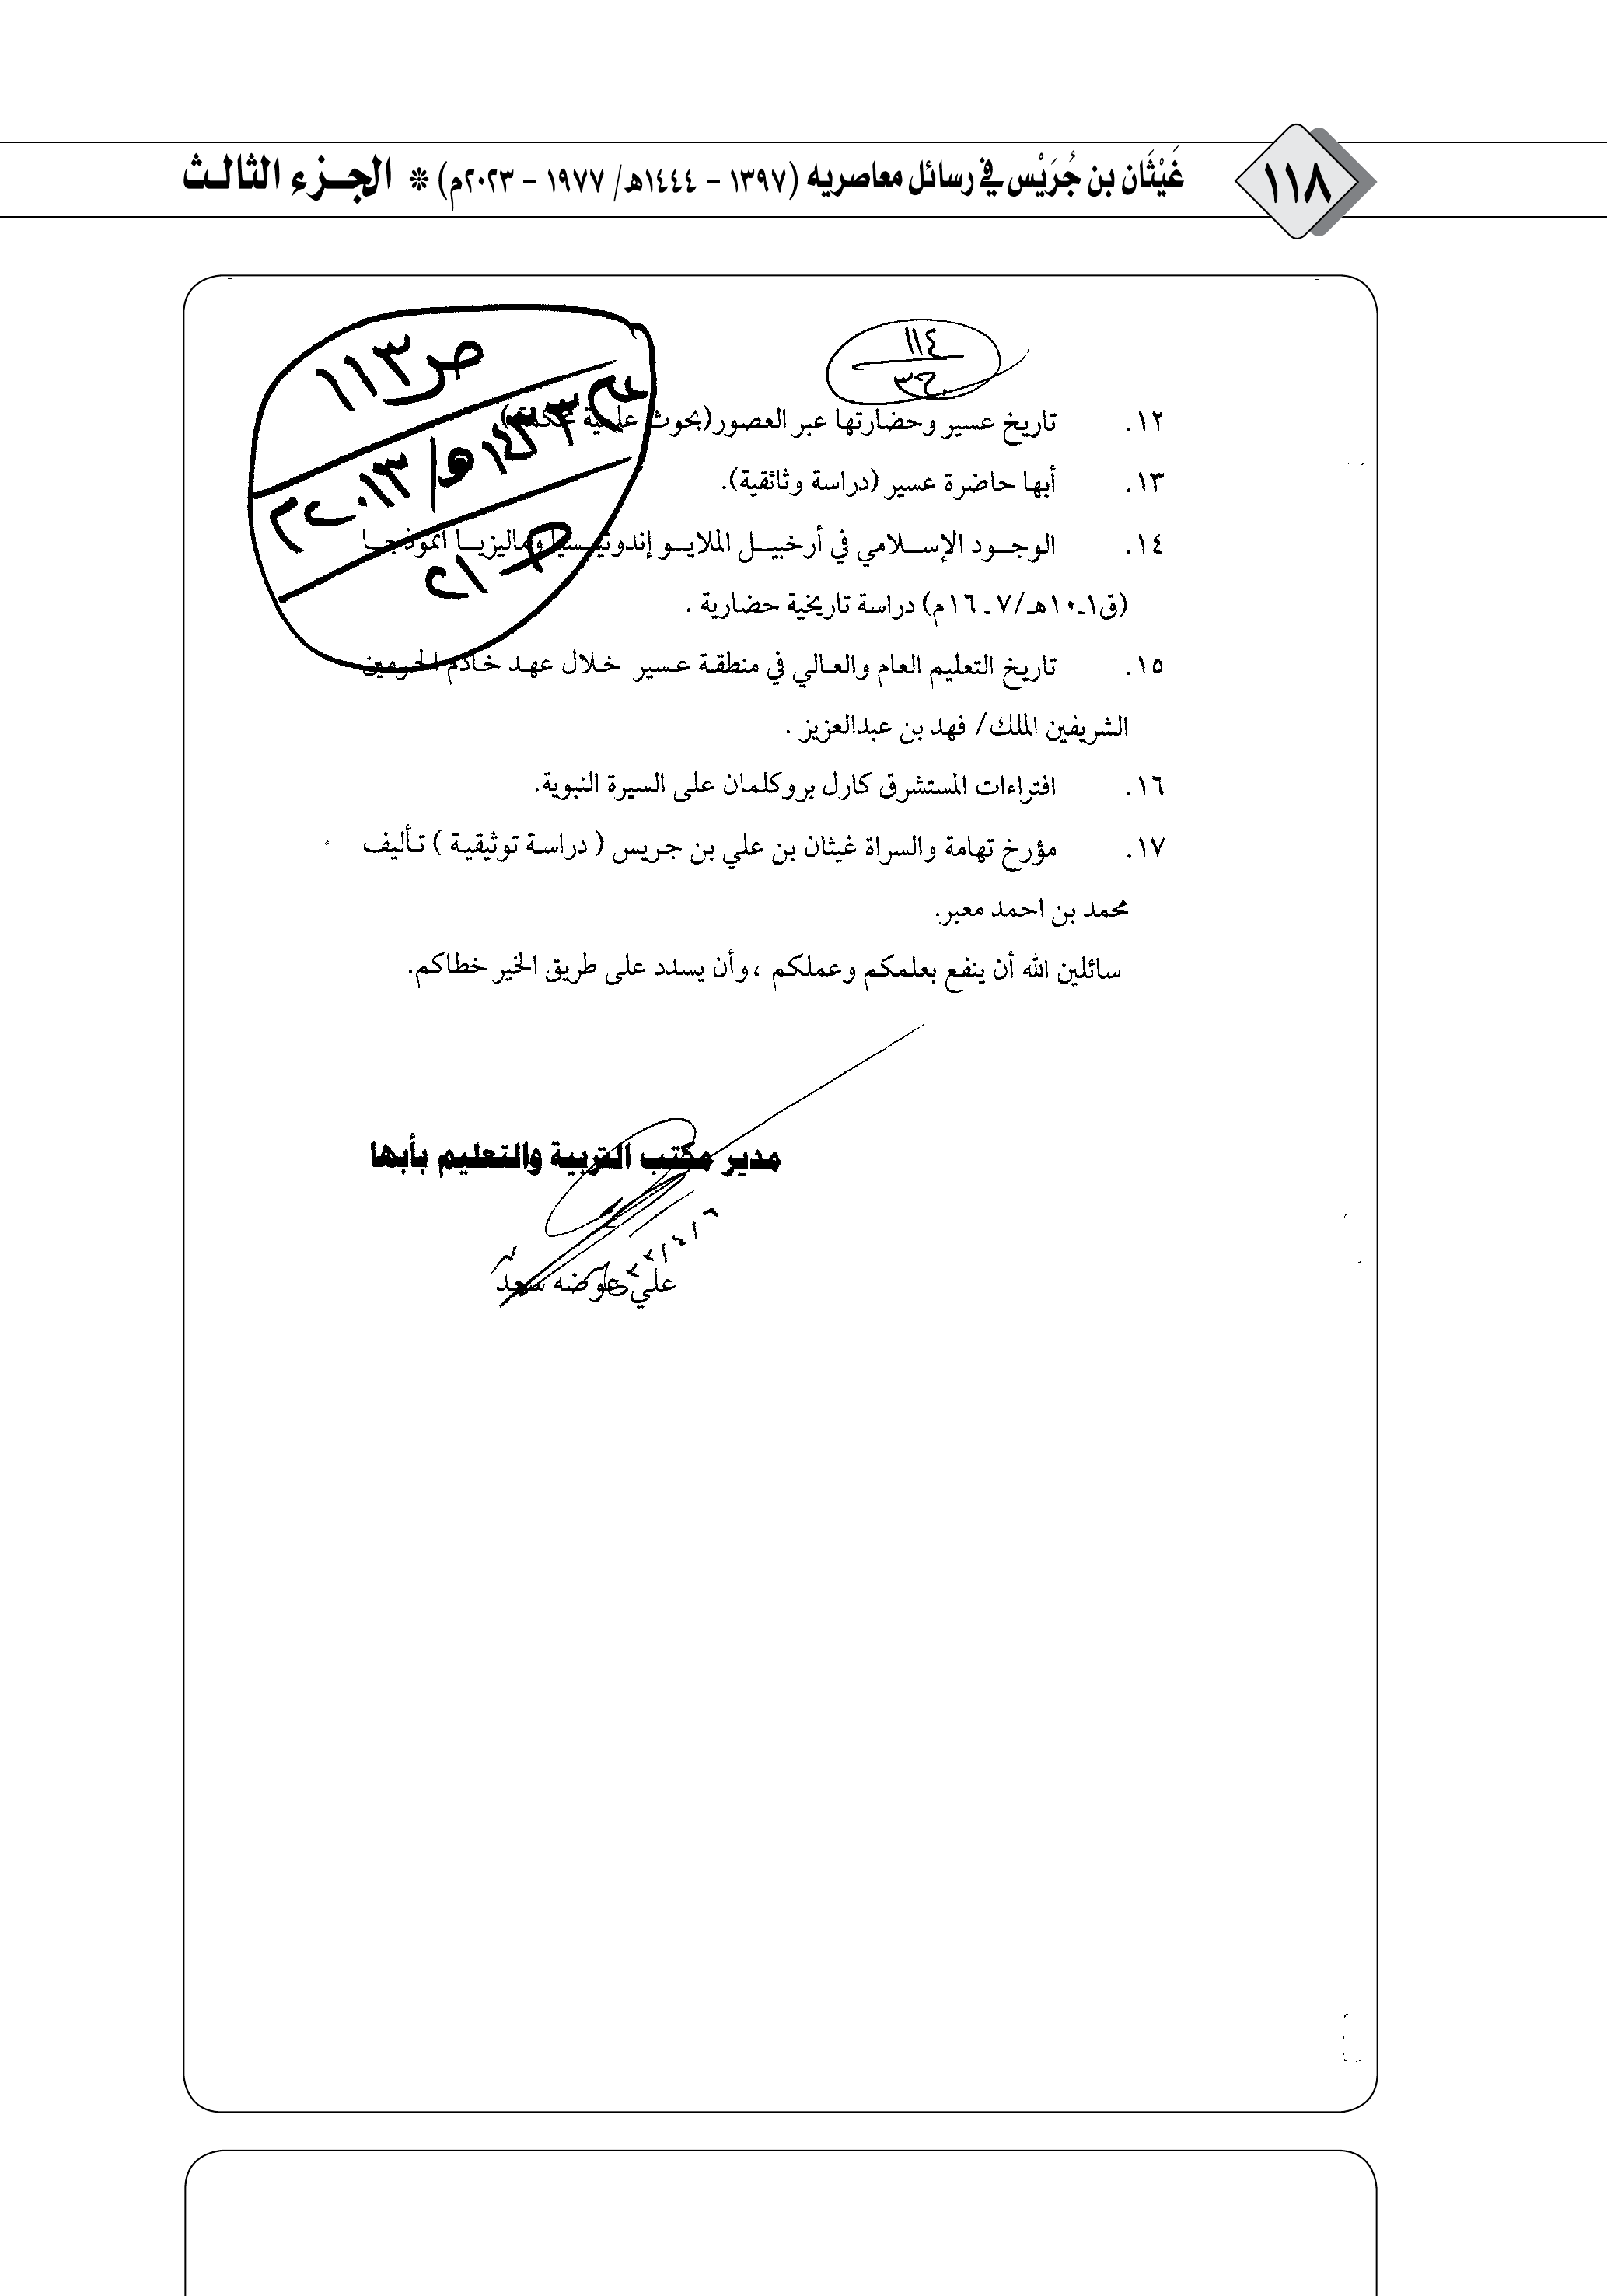 ١١٨
غَيْثَان بن جُرَيْس في رسائل معاصريه (١٣٩٧ – ١٤٤٤هـ/ ١٩٧٧ – ٢٠٢٣م) * الجزء الثالث
١١٤
ص١١٣
١٤٣٣هـ/ ٢٠١٣م
١٢. تاريخ عسير وحضارتها عبر العصور(بحوث علمية محكمة)
١٣. أبها حاضرة عسير (دراسة وثائقية).
١٤. الوجود الإسلامي في أرخبيل الملايو إندونيسيا وماليزيا أنموذجا
(ق١-١٠هـ/٧-١٦م) دراسة تاريخية حضارية .
١٥. تاريخ التعليم العام والعالي في منطقة عسير خلال عهد خادم الحرمين
الشريفين الملك/ فهد بن عبدالعزيز .
١٦. افتراءات المستشرق كارل بروكلمان على السيرة النبوية.
١٧. مؤرخ تهامة والسراة غيثان بن علي بن جريس ( دراسة توثيقية ) تأليف
محمد بن احمد معبر.
سائلين الله أن ينفع بعلمكم وعملكم ،وأن يسدد على طريق الخير خطاكم.
مدير مكتب التربية والتعليم بأبها
علي عوضه سعد